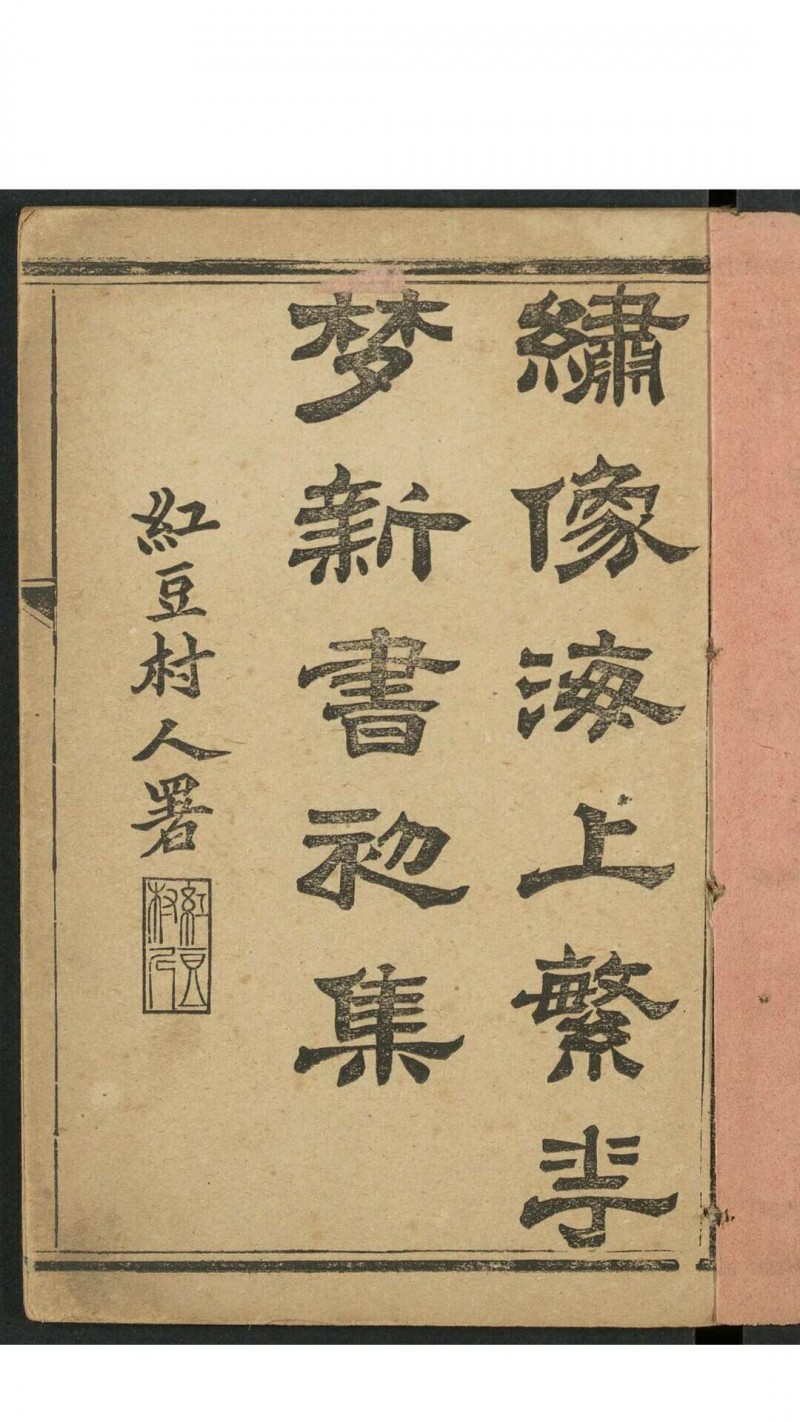 繡像海上繁𠌶
梦新書初集
紅豆村人署
紅豆
村人